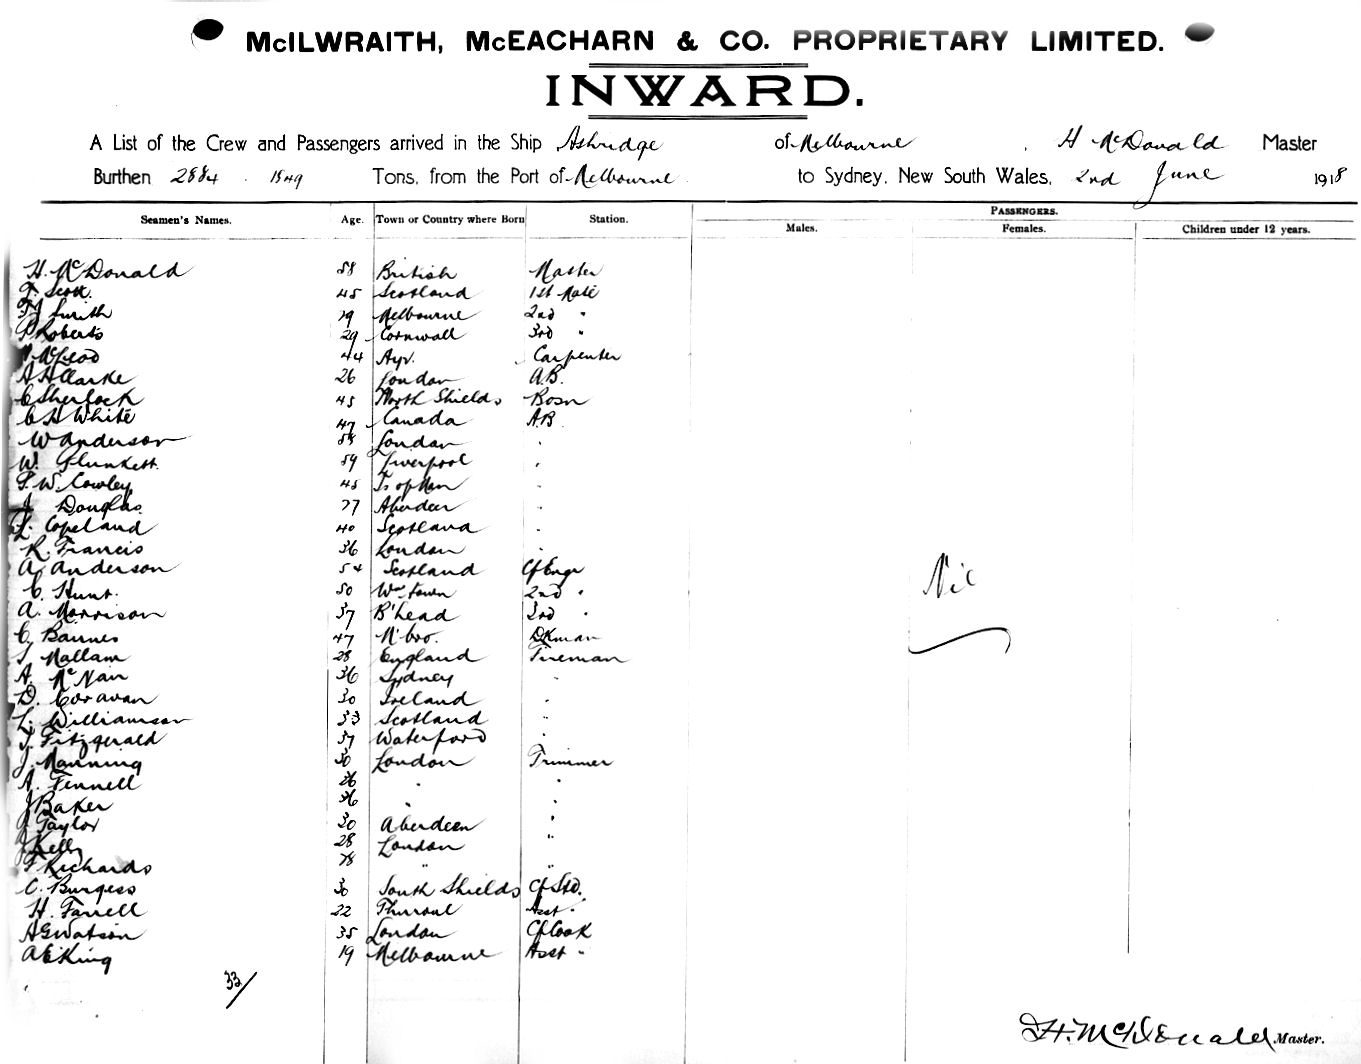 McILWRAITH, McEACHARN & CO. PROPRIETARY LIMITED.
INWARD.
A List of the Crew and Passengers arrived in the Ship Ashridge of Melbourne, H McDonald Master
Burthen 2884 . 1849 Tons, from the Port of Melbourne to Sydney, New South Wales, 2nd June 1918
PASSENGERS.
Seamen's Names. Age. Town or Country where Born Station. Males. Females. Children under 12 years.
H. McDonald 58 British Master
F. Scott. 45 Scotland 1st Mate
Smith 29 Melbourne 2nd "
P Roberts 29 Cornwall 3rd "
McLeod 44 Ayr. Carpenter
A H Clarke 26 London A.B.
C Sherlock 45 North Shields Bosn
C H White 47 Canada A.B.
W Anderson 58 London "
W. Plunkett. 59 Liverpool "
W. Cowley 45 Is of Man "
J Douglas 27 Aberdeen "
Copeland 40 Scotland "
R. Francis 36 London "
A. Anderson 54 Scotland Cf Engr
C. Hunt. 50 Wmstown 2nd "
A. Morrison 37 B'head 3rd "
C. Barnes 47 M'bro. DKman
Mallam 28 England Fireman
A. McNair 36 Sydney "
D. Coravan 30 Ireland "
L. Williamson 33 Scotland "
Fitzgerald 37 Waterford "
J. Manning 30 London Trimmer
A. Fennell 26 " "
J Baker 36 " "
J. Taylor 30 Aberdeen "
J Kelly 28 London "
F Richards 28 " "
C. Burgess 30 South Shields Cf Std.
H. Farrell 22 Asst "
A G Watson 35 London Cf Cook
A E King 19 Melbourne Asst "
Nil
33/
H. McDonald Master.